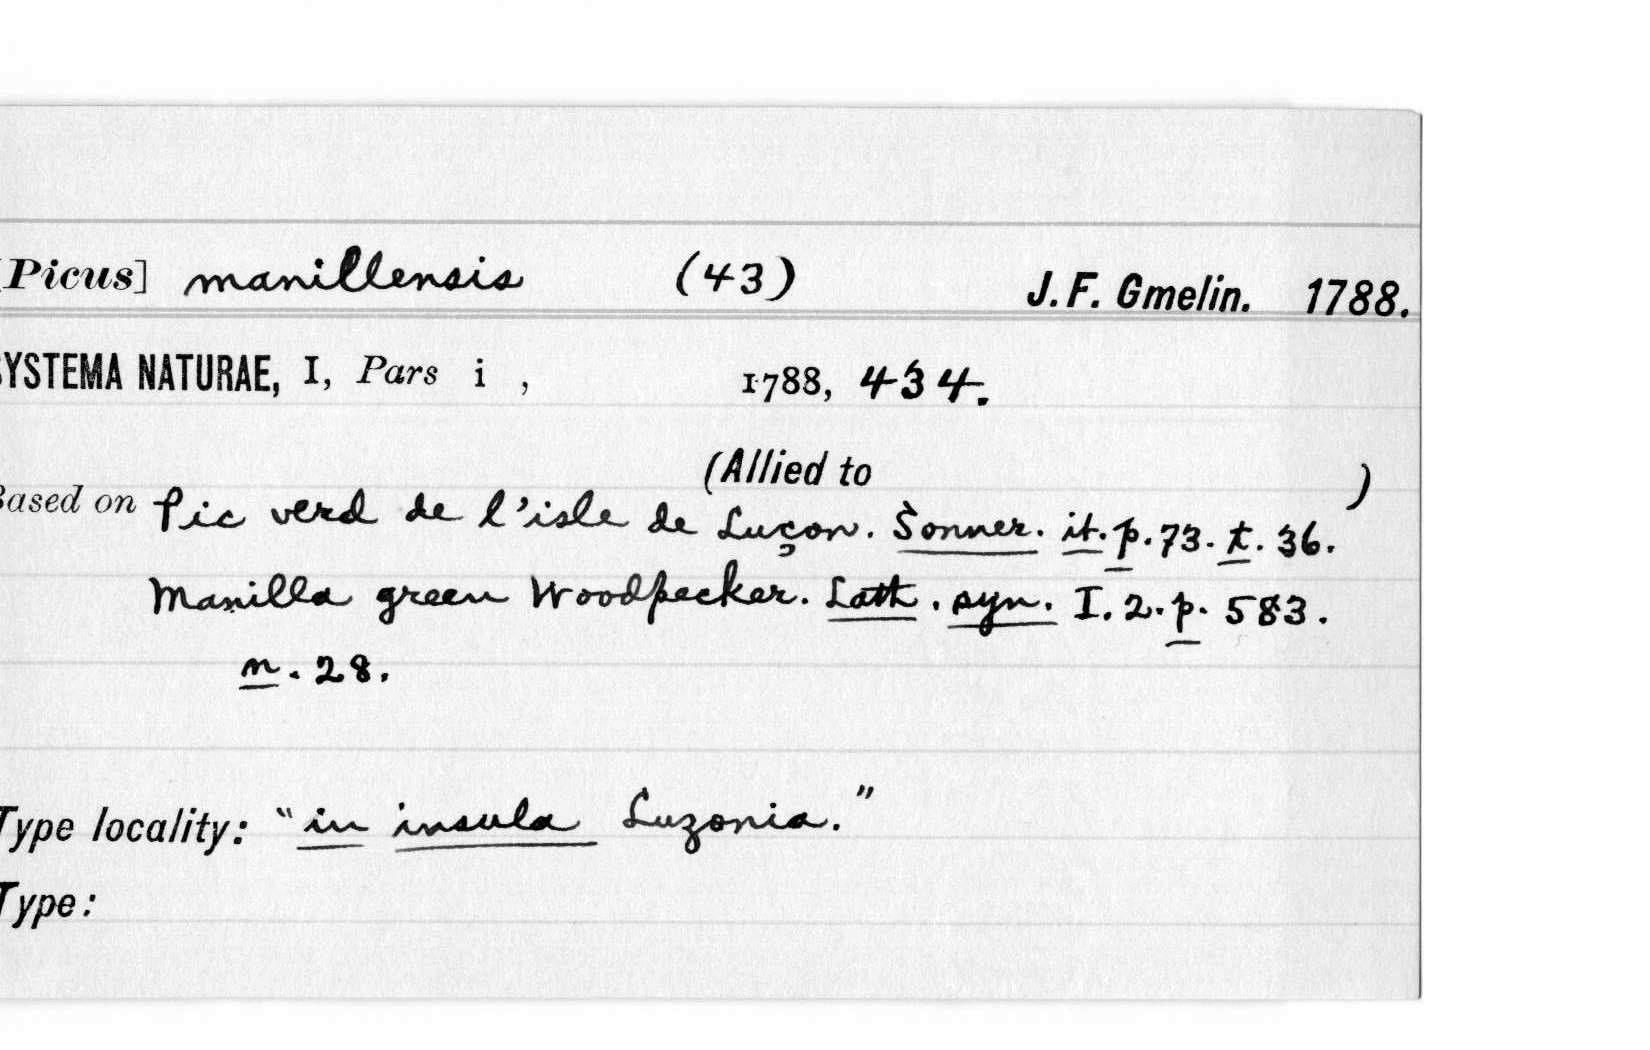 [Picus] manillensis (43) J. F. Gmelin. 1788.
SYSTEMA NATURAE, I, Pars i , 1788, 434.
(Allied to )
Based on Pic verd de l'isle de Luçon. Sonner. it. p. 73. t. 36.
Manilla green Woodpecker. Lath. syn. I. 2. p. 583.
n. 28.
Type locality: "in insula Luzonia."
Type: